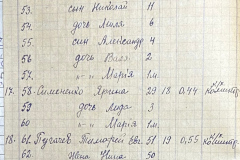 53. сын Николай 11
54. дочь Люля 6
55. сын Александр 4
56. дочь Валя 2
57. " Марія 1м.
17. 58. Симоненко Ярина 29 18 0,44
59. дочь Лида 3
60. " Марія 1м.
18. 61. Пугачев Тимофей 51 19 0,55
62. Нина 50